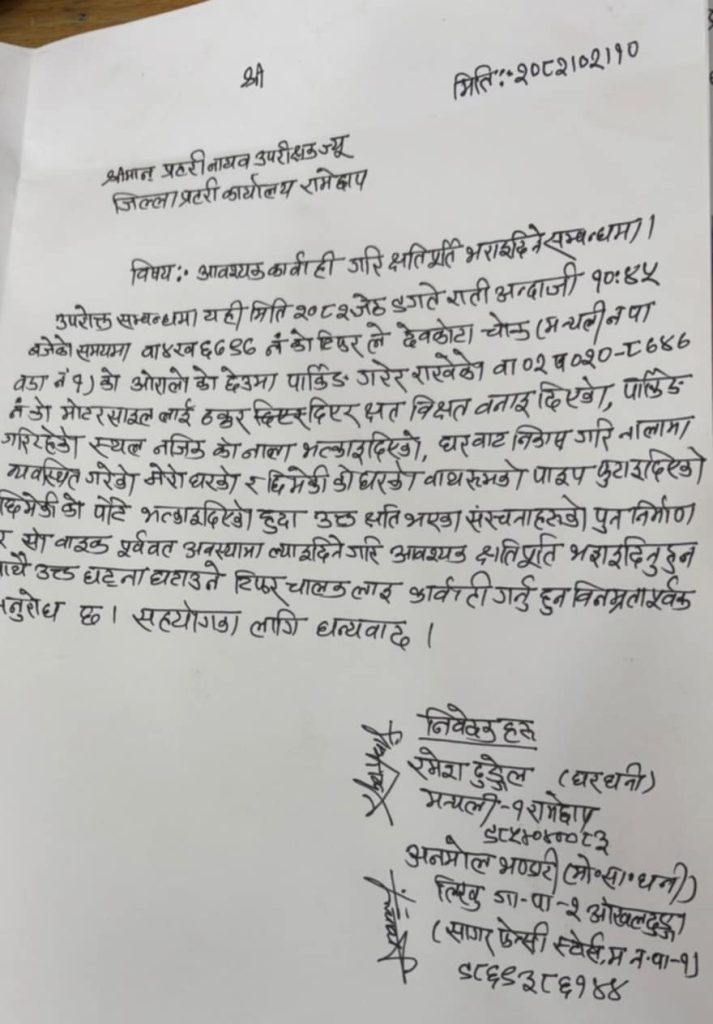 श्री
मितिः-२०८२।०२।१०
श्रीमान् प्रहरी नायव उपरीक्षक ज्यू
जिल्ला प्रहरी कार्यालय रामेछाप
विषय:- आवश्यक कार्वाही गरि क्षतिपूर्ति भराइदिने सम्बन्धमा।
उपरोक्त सम्बन्धमा यही मिति २०८२ जेठ ९ गते राती अन्दाजी १०:४५
बजेको समयमा वा४ख६७९६ नं को टिपर ले देवकोटा चोक (मन्थली न पा
वडा नं १) को ओरालो को देउमा पार्किङ गरेर राखेको वा०२प०२०-८६४६
नं को मोटरसाइल लाई ठक्कर दिएर क्षत विक्षत वनाइ दिएको, पार्किङ
गरिरहेको स्थल नजिक को नाला भत्काइदिएको, घरवाट निकाष गरि नालामा
व्यवस्थित गरेको मेरो घरको र छिमेकी को घरको वाथरुमको पाइप फुटाइदिएको
छिमेकी को पेटि भत्काइदिएको हुदा उक्त क्षति भएका संरचनाहरुको पुन निर्माण
र सो वाइक पूर्ववत अवस्थामा ल्याइदिने गरि आवश्यक क्षतिपूर्ति भराइदिनु हुन
साथै उक्त घटना घटाउने टिपर चालक लाइ कार्वाही गर्नु हुन विनम्रतापूर्वक
अनुरोध छ। सहयोगका लागि धन्यवाद।
निवेदक हरु
रमेश दुङ्गेल (घरधनी)
मन्थली-१ रामेछाप
९८५४०४००८३
अनमोल भण्डारी (मो॰सा॰धनी)
लिखु गा-पा-२ ओखलढुङ्गा
(सागर फेन्सी स्टोर्स, म न॰पा-१)
९८६९३८६१४४